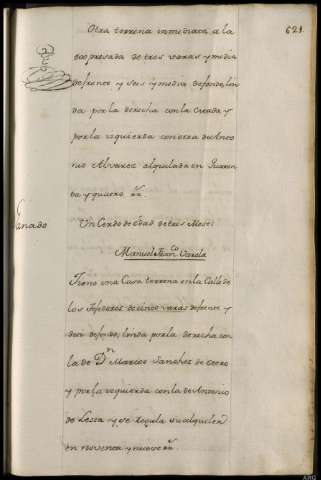 621
Otra terrena inmediata a la
expresada de tres varas y media
de frente y seis y media de fondo, lin
da por la derecha con la Citada y
por la izquierda con otra de Anto
nio Alvarez alquilada en Quaren
ta y quatro rr.
Ganado
Un Cerdo de edad de tres Meses
Manuel Fran.co Varela
Tiene una Casa terrena en la Calle de
los Tejedores de cinco varas de frente y
de fondo, linda por la derecha con
la de D.n Marcos Sanchez de
y por la izquierda con la de Antonio
de Lessa y se regula su alquiler
en noventa y nueve rr.
ARG